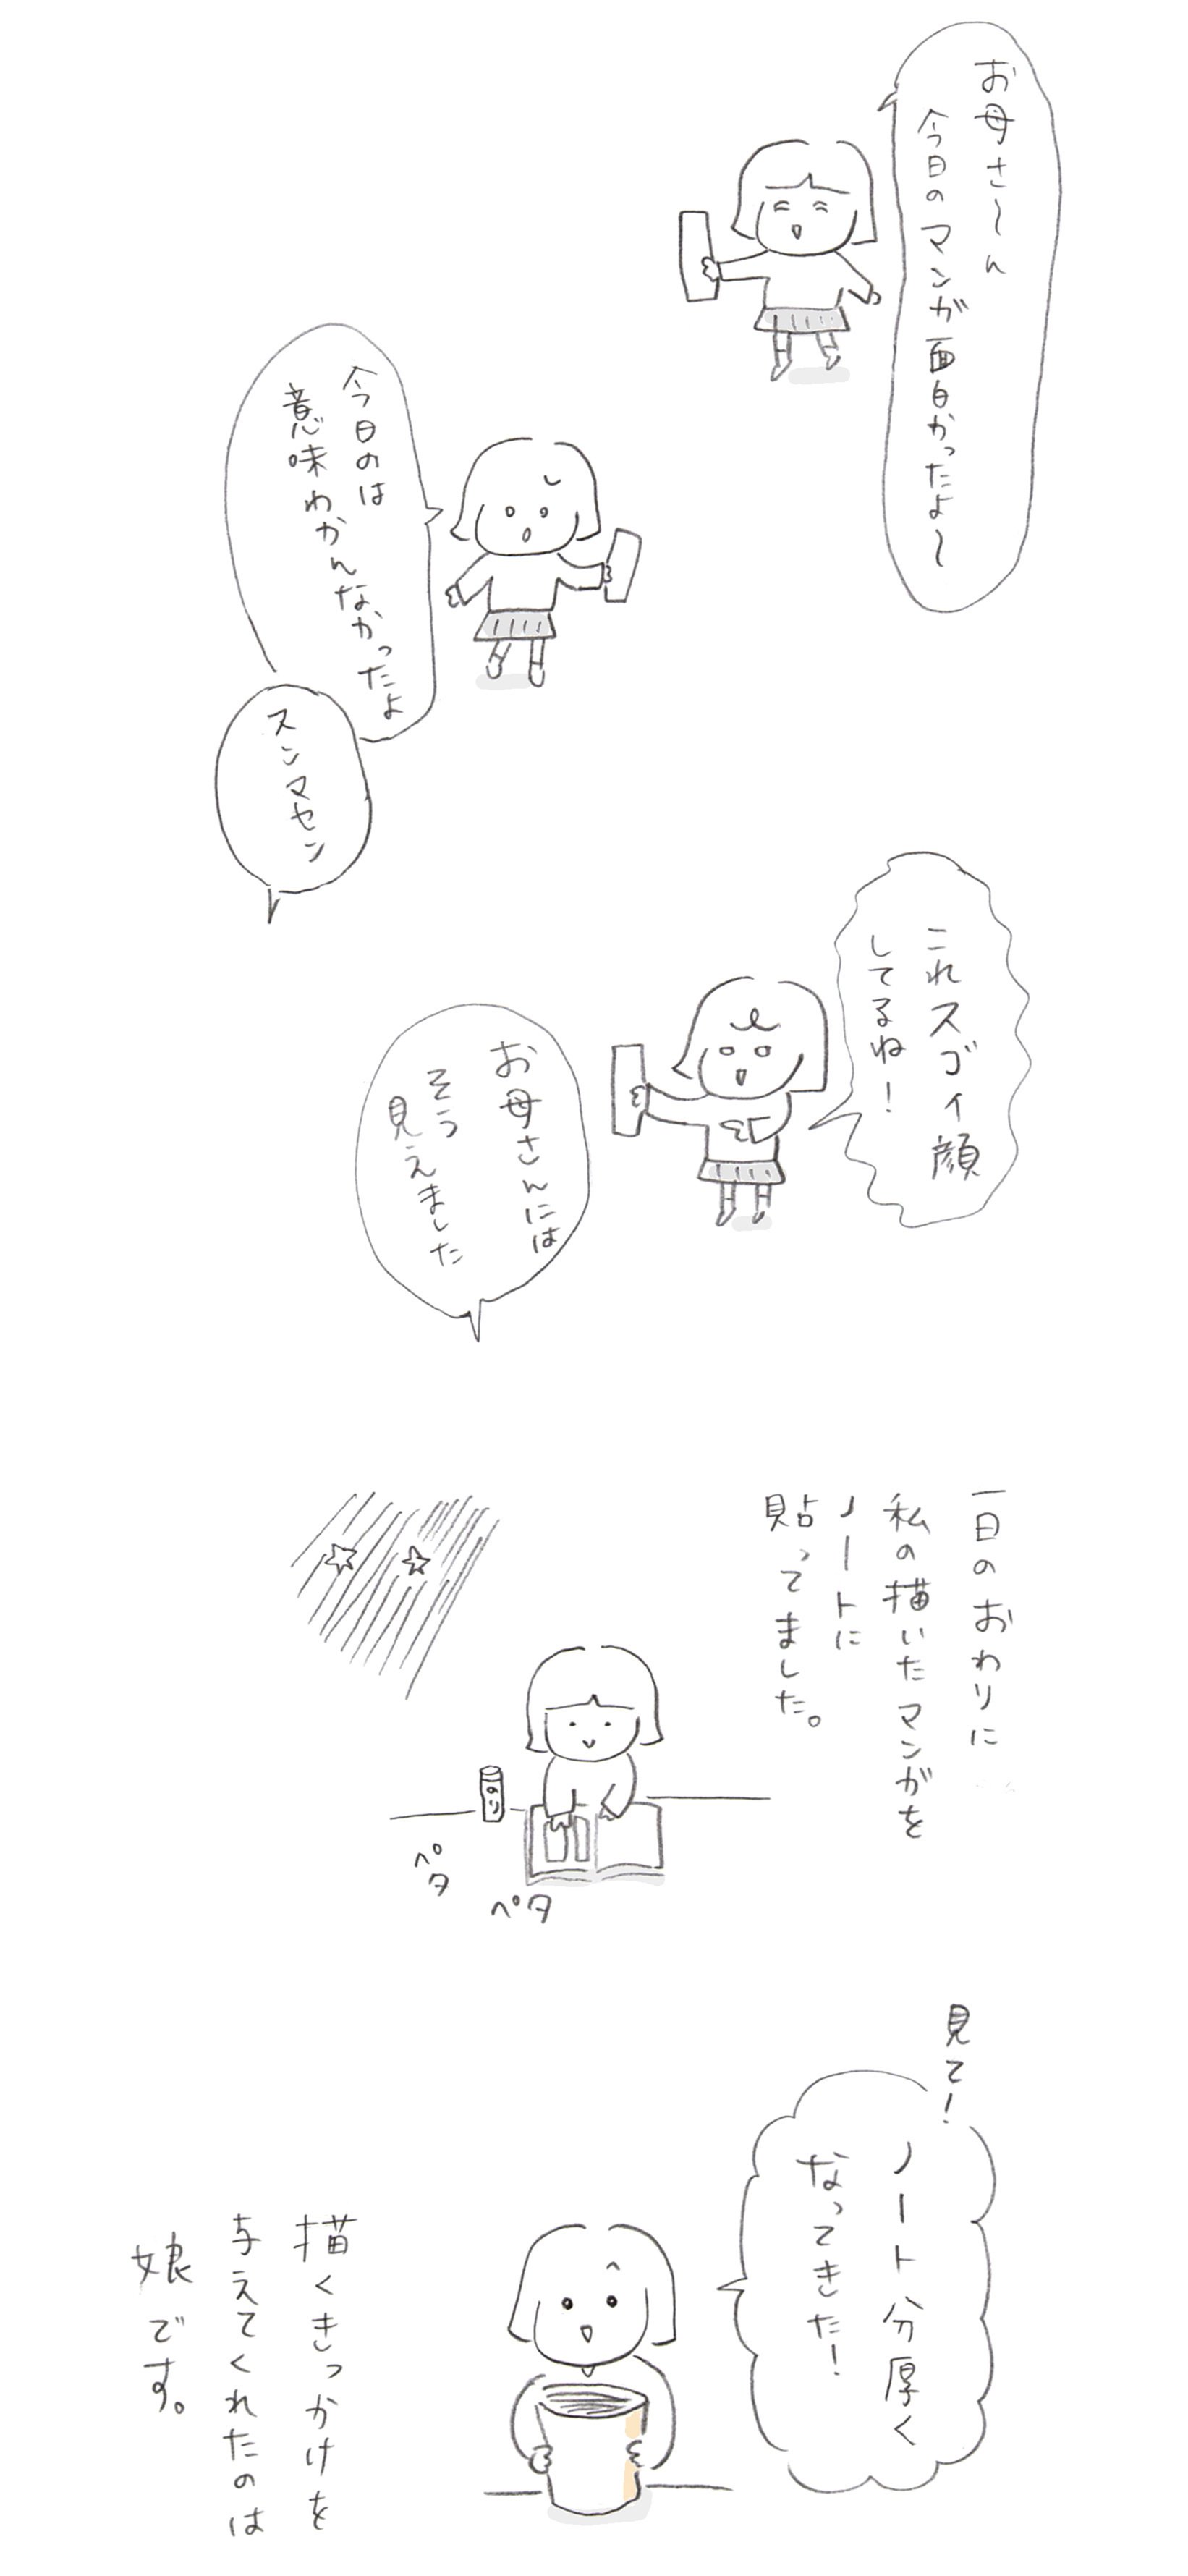 お母さ〜ん
今日のマンガ面白かったよ〜
今日のは
意味わかんなかったよ
スンマセン
これスゴイ顔
してるね！
お母さんには
そう
見えました
一日のおわりに
私の描いたマンガを
ノートに
貼ってました。
のり
ペタ
ペタ
見て！
ノート分厚く
なってきた！
描くきっかけを
与えてくれたのは
娘です。